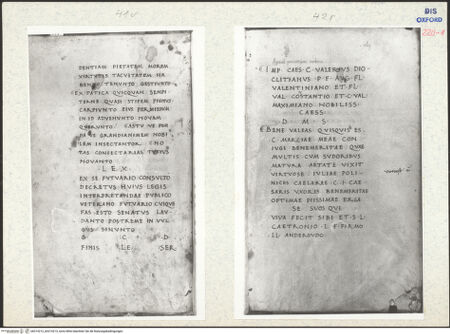 41v
42r
DIS
OXFORD
DENTIAM PIETATEM MORAM
VIRTUTES TACVITATEM HA
BENE TENUNTO GUSTUNTO
EMPATICA QUICQUAM SEMPI
TERNE QUASI STIPEM PRONO
CARPIUNTO EIUS PERMISERUM
IN ID ADVENUTO NOVAM
QUERUNTO
GRANDIANIEM NOBI
LEM INSECTANTOR
TAS CONSECTARIAS TUTIUS
NOVANTO
LEX
EX SE FUTVARIO CONSULTO
DECRETUS HVIVS LEGIS
INTERPRETANDAE PUBLICO
VETERANO FUTVARIO CUIQUE
FAS ESTO SENATUS LAU
DANTO POSTREME IN VUL
GUS SINUNTO
S C D
FINIS LE SER
IMP CAES C VALERIVS DIO
CLETIANVS P F AVG FL
VALENTINIANO ET FL
VAL COSTANTIO ET C VAL
MAXIMIANO NOBILISS
CAESS
D M S
BENE VALEAS QVISQVIS ES
C MARCIAE MEAE CON
IVGI BENEMERITAE QUAE
MULTIS CUM SUDORIBUS
MATURA AETATE VIXIT
VIRTUOSE IULIAE POLI
NICIS CAESAREAE C I CAE
SARIS UXORIS BENEMERITAE
OPTIMAE PIISSIMAE ERGA
SE SUOS QUE
VIVA FECIT SIBI ET S L
CAETRONIO L F FIRMO
LL ANDERUDO